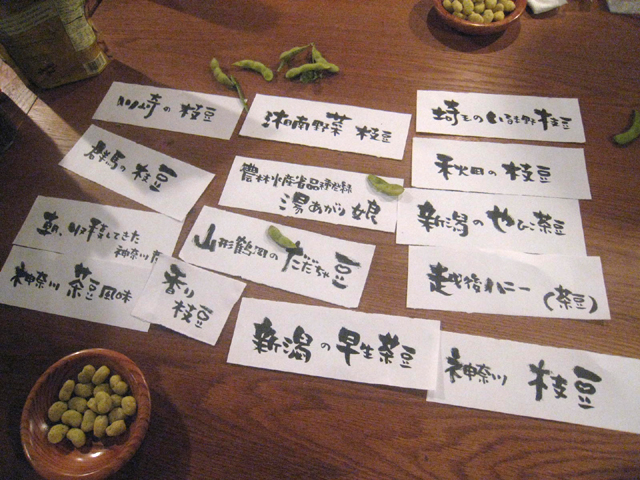 川崎の 枝豆
湘南野菜 枝豆
埼玉の いるま野 枝豆
群馬の 枝豆
農林水産省品種登録
湯あがり娘
秋田の 枝豆
新潟の やひこ茶豆
朝、収穫してきた
神奈川
山形鶴岡の だだちゃ豆
神奈川 茶豆風味
香り
枝豆
越後ハニー
(茶豆)
新潟の 早生茶豆
神奈川 枝豆